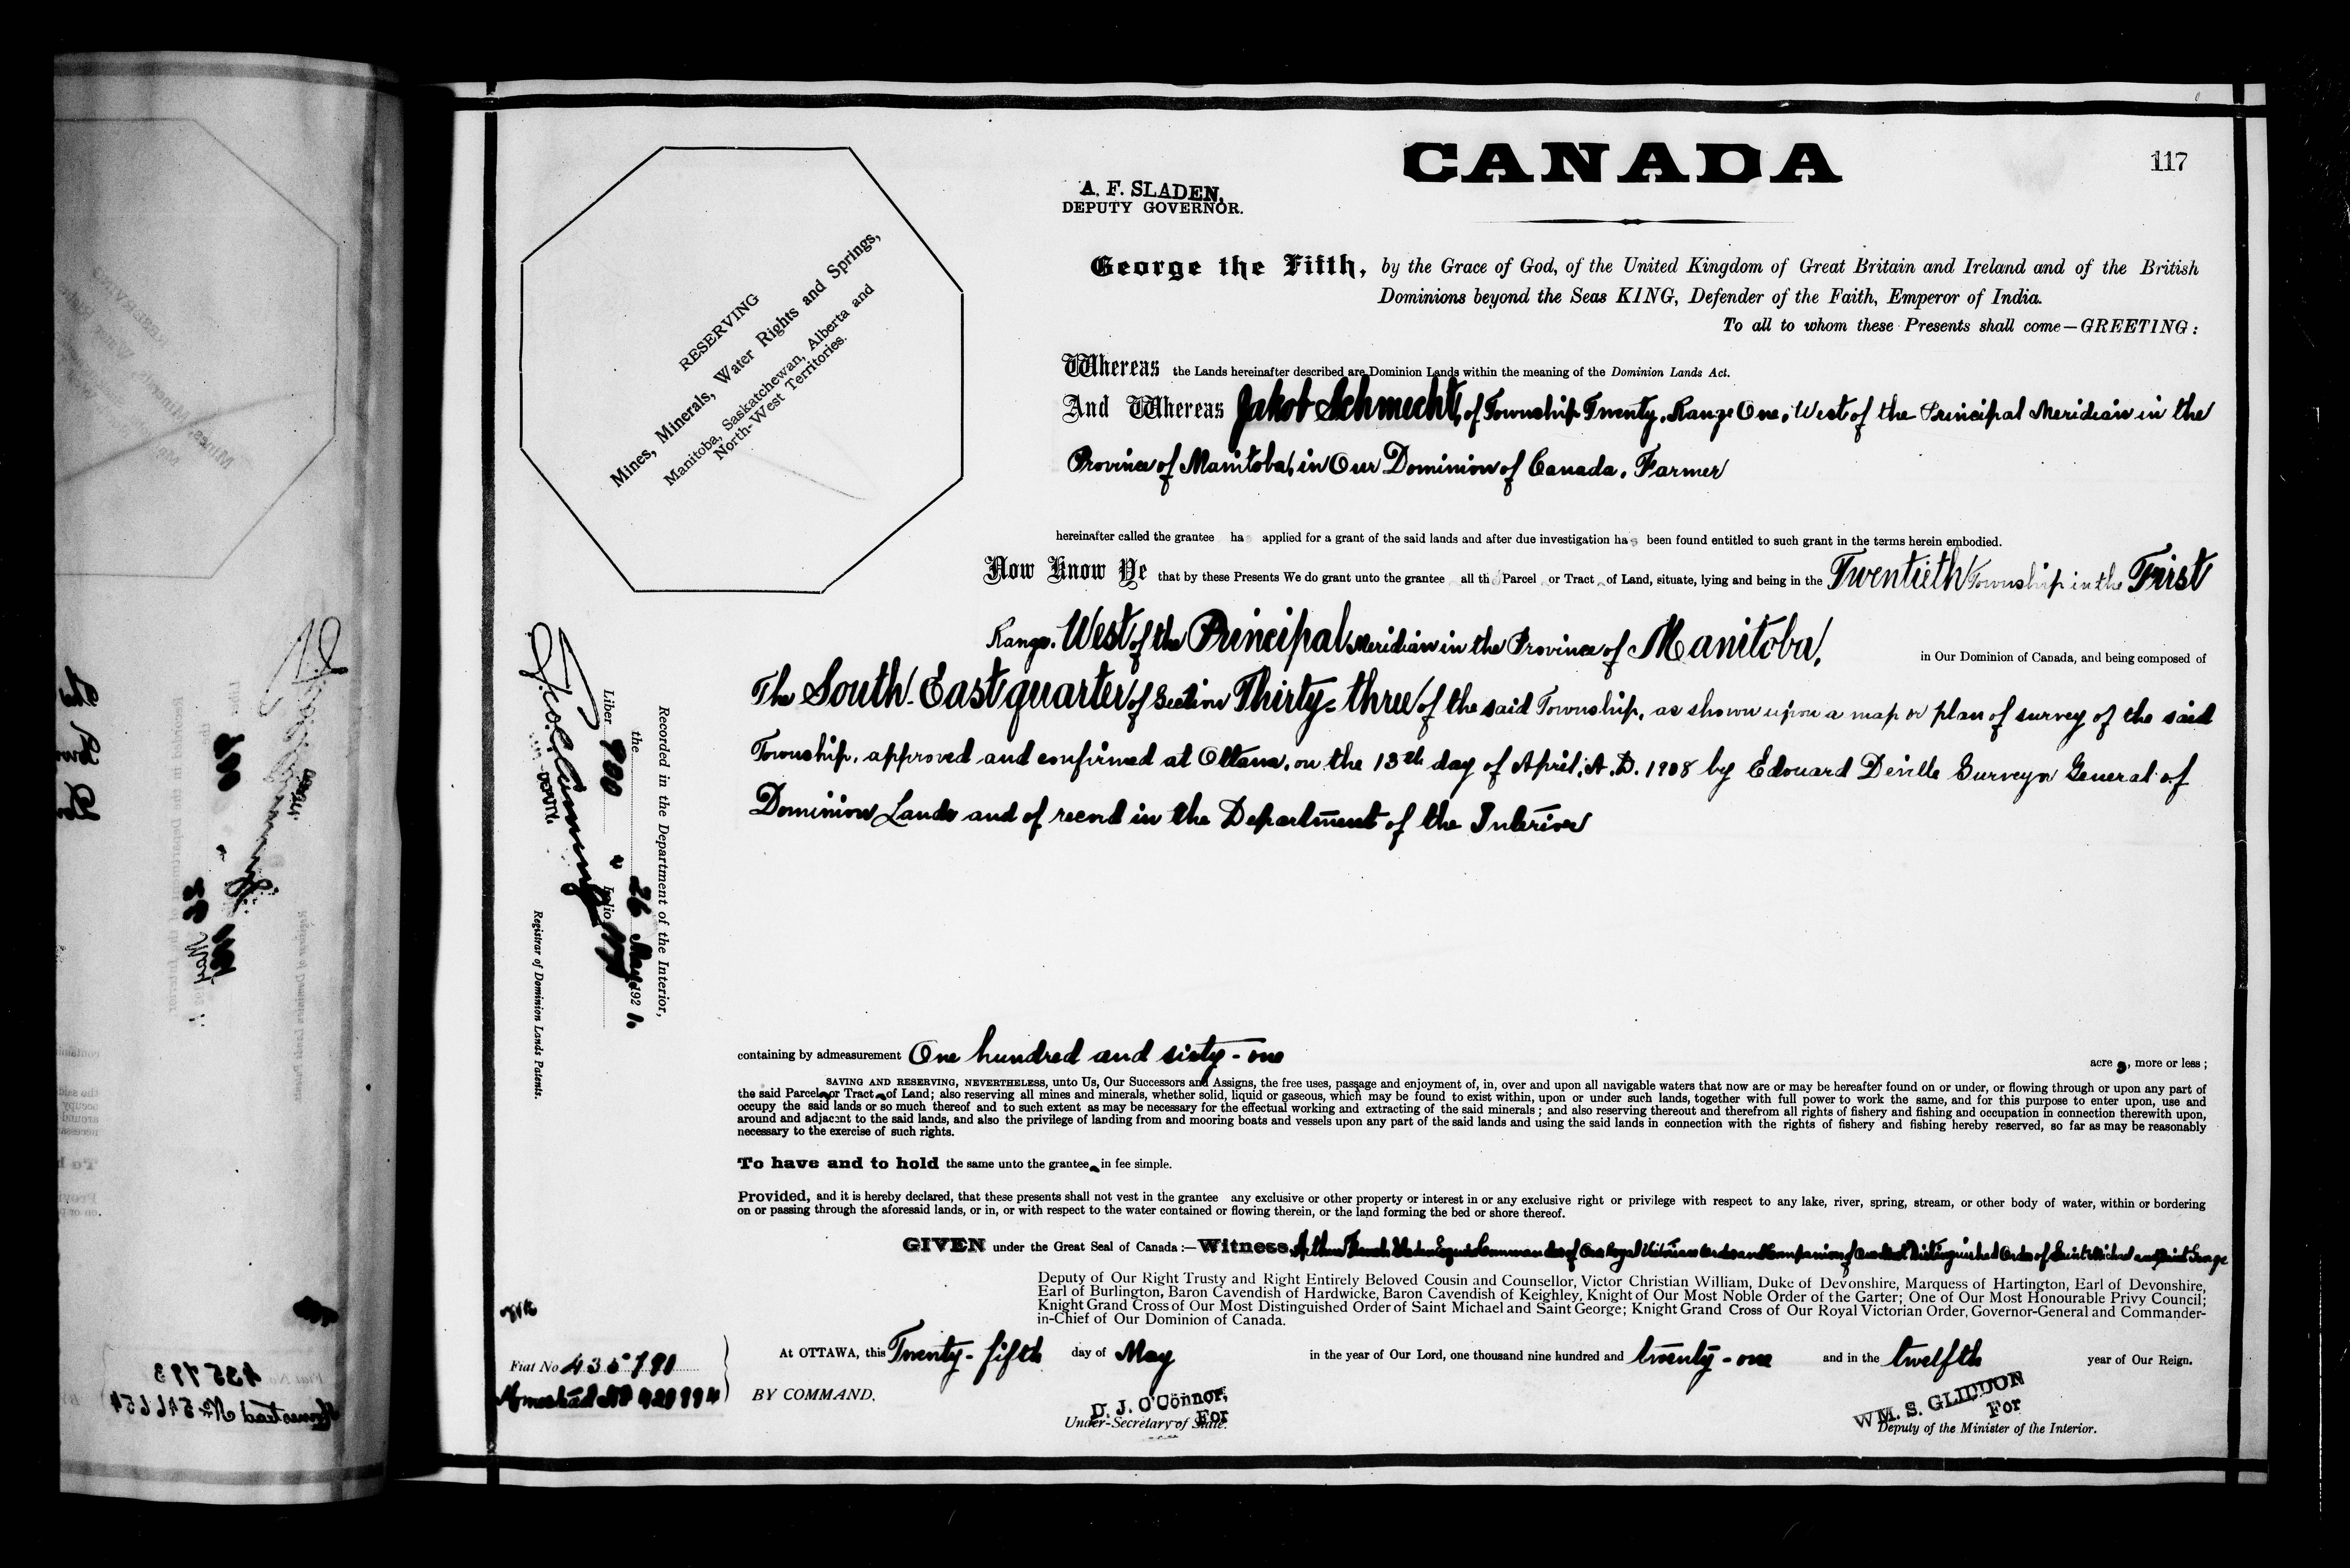 CANADA
117
A. F. SLADEN,
DEPUTY GOVERNOR.
RESERVING
Mines, Minerals, Water Rights and Springs,
Manitoba, Saskatchewan, Alberta and
North-West Territories.
George the Fifth, by the Grace of God, of the United Kingdom of Great Britain and Ireland and of the British
Dominions beyond the Seas KING, Defender of the Faith, Emperor of India.
To all to whom these Presents shall come—GREETING:
Whereas the Lands hereinafter described are Dominion Lands within the meaning of the Dominion Lands Act.
And Whereas Jakob Schmecht, of Township Twenty, Range One, West of the Principal Meridian in the
Province of Manitoba, in Our Dominion of Canada, Farmer
hereinafter called the grantee has applied for a grant of the said lands and after due investigation has been found entitled to such grant in the terms herein embodied.
Now Know Ye that by these Presents We do grant unto the grantee all th Parcel or Tract of Land, situate, lying and being in the Twentieth Township in the First
Range, West of the Principal Meridian in the Province of Manitoba, in Our Dominion of Canada, and being composed of
The South-East quarter of Section Thirty-three of the said Township, as shown upon a map or plan of survey of the said
Township, approved and confirmed at Ottawa, on the 13th day of April, A.D. 1908 by Edouard Deville Surveyor General of
Dominion Lands and of record in the Department of the Interior
Recorded in the Department of the Interior,
the 26 May 1921.
Liber 700 Folio 117
DEPUTY
Registrar of Dominion Lands Patents.
containing by admeasurement One hundred and sixty-one acres, more or less;
SAVING AND RESERVING, NEVERTHELESS, unto Us, Our Successors and Assigns, the free uses, passage and enjoyment of, in, over and upon all navigable waters that now are or may be hereafter found on or under, or flowing through or upon any part of
the said Parcel or Tract of Land; also reserving all mines and minerals, whether solid, liquid or gaseous, which may be found to exist within, upon or under such lands, together with full power to work the same, and for this purpose to enter upon, use and
occupy the said lands or so much thereof and to such extent as may be necessary for the effectual working and extracting of the said minerals; and also reserving thereout and therefrom all rights of fishery and fishing and occupation in connection therewith upon,
around and adjacent to the said lands, and also the privilege of landing from and mooring boats and vessels upon any part of the said lands and using the said lands in connection with the rights of fishery and fishing hereby reserved, so far as may be reasonably
necessary to the exercise of such rights.
To have and to hold the same unto the grantee in fee simple.
Provided, and it is hereby declared, that these presents shall not vest in the grantee any exclusive or other property or interest in or any exclusive right or privilege with respect to any lake, river, spring, stream, or other body of water, within or bordering
on or passing through the aforesaid lands, or in, or with respect to the water contained or flowing therein, or the land forming the bed or shore thereof.
GIVEN under the Great Seal of Canada:—Witness, Arthur French Sladen Esquire Commander of Our Royal Victorian Order and Companion of Our Most Distinguished Order of Saint Michael and Saint George
Deputy of Our Right Trusty and Right Entirely Beloved Cousin and Counsellor, Victor Christian William, Duke of Devonshire, Marquess of Hartington, Earl of Devonshire,
Earl of Burlington, Baron Cavendish of Hardwicke, Baron Cavendish of Keighley, Knight of Our Most Noble Order of the Garter; One of Our Most Honourable Privy Council;
Knight Grand Cross of Our Most Distinguished Order of Saint Michael and Saint George; Knight Grand Cross of Our Royal Victorian Order, Governor-General and Commander-
in-Chief of Our Dominion of Canada.
At OTTAWA, this Twenty-fifth day of May in the year of Our Lord, one thousand nine hundred and twenty-one and in the twelfth year of Our Reign.
Fiat No 435790
Homestead No
BY COMMAND.
D. J. O'Connor,
For
Under-Secretary of State.
WM. S. GLIDDON
For
Deputy of the Minister of the Interior.